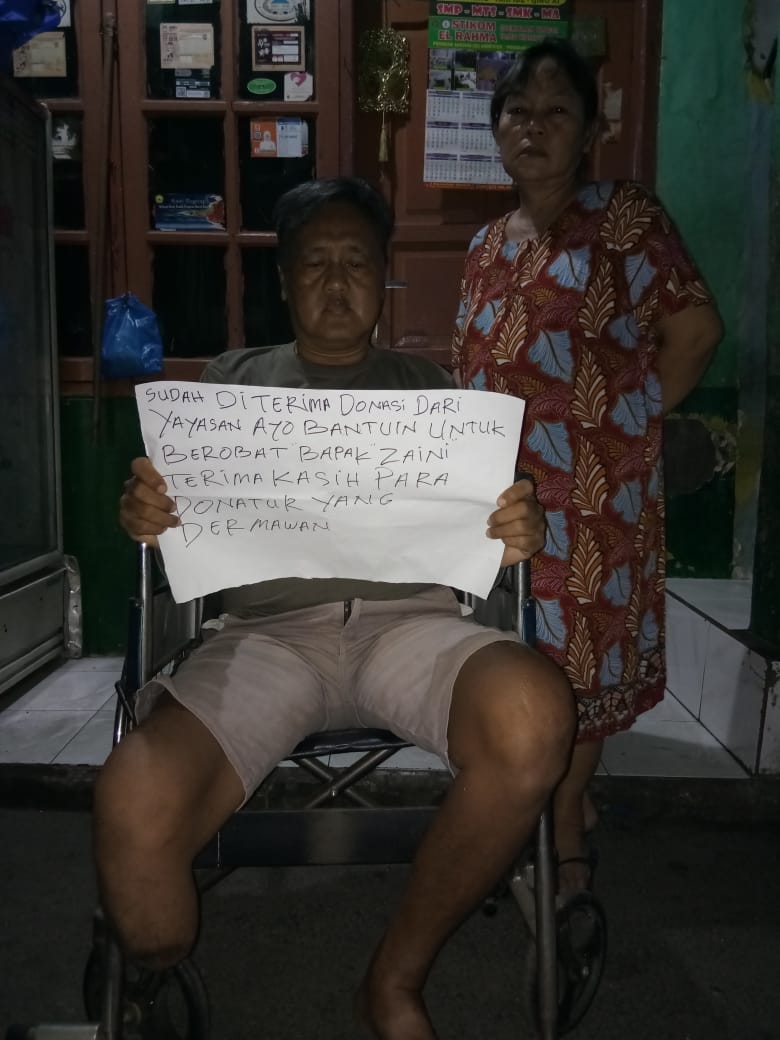 SMP - MTS - SMK - MA
STIKOM
EL RAHMA
SUDAH DITERIMA DONASI DARI
YAYASAN AYO BANTUIN UNTUK
BEROBAT "BAPAK" ZAINI
TERIMA KASIH PARA
DONATUR YANG
DERMAWAN